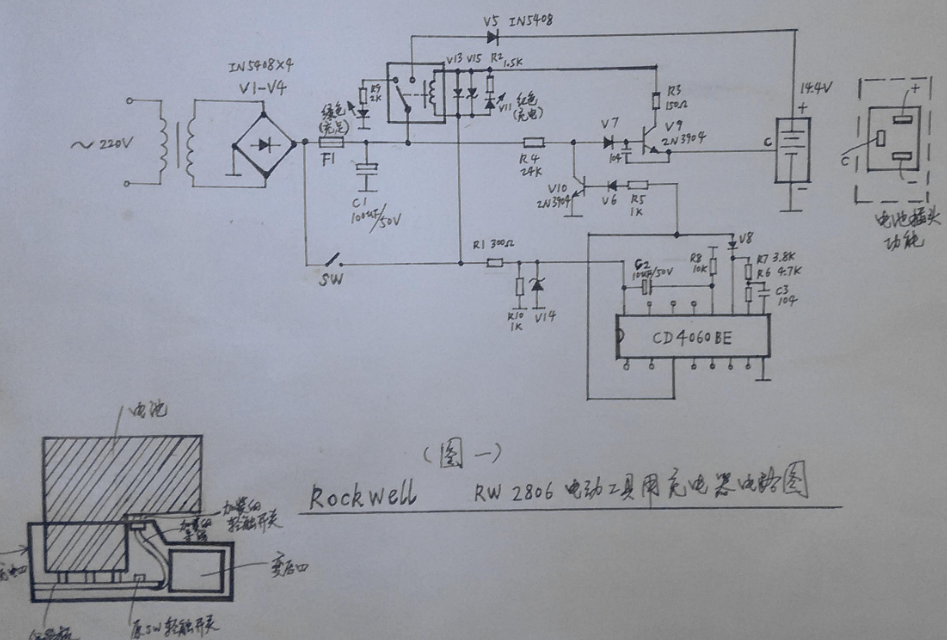 V5 IN5408
IN5408×4
V1-V4
~220V
绿色
(充足)
R9
2K
V13
V15
R2
1.5K
V11
红色
(充电)
F1
C1
100uF/50V
R4
24K
V7
104
R3
150Ω
V9
2N3904
V10
2N3904
V6
R5
1K
14.4V
+
C
-
+
C
-
电池插头
功能
SW
R1 300Ω
R10
1K
V14
C2
10uF/50V
R8
10K
V8
R7 3.8K
R6 4.7K
C3
104
CD4060BE
电池
加装的
轻触开关
加装的
变压器
原SW轻触开关
(图一)
Rockwell RW2806 电动工具用充电器电路图